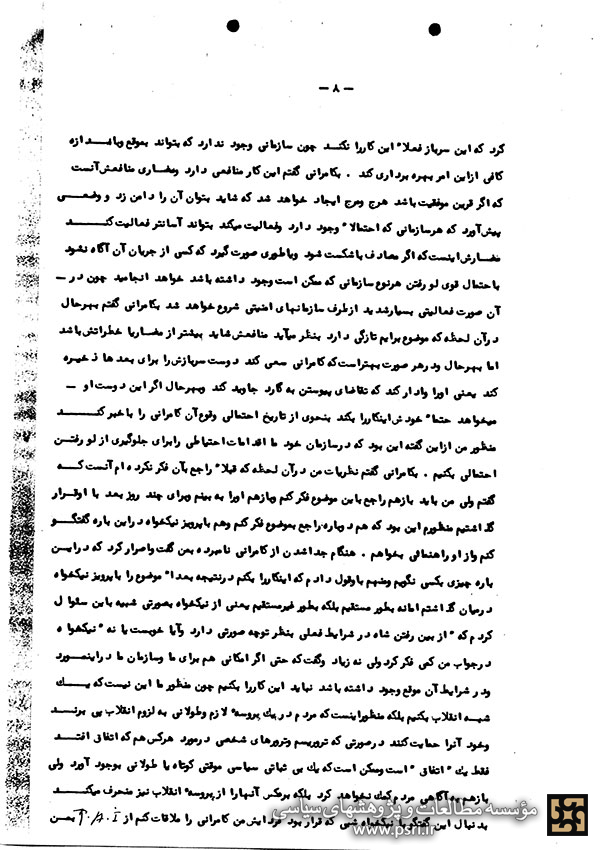 — ۸ —
کرد که این سرباز فعلا" این کاررا نکند چون سازمانی وجود ندارد که بتواند بموقع وباندازه
کافی ازاین امر بهره برداری کند . بکامرانی گفتم این کار منافعی دارد ومضاری منافعش آنست
که اگر قرین موفقیت باشد هرج ومرج ایجاد خواهد شد که شاید بتوان آن را دامن زد و وضعی
پیش آورد که هرسازمانی که احتمالا" وجود دارد وفعالیت میکند بتواند آسانتر فعالیت کند
مضارش اینست که اگر مصادف باشکست شود ویاطوری صورت گیرد که کسی از جریان آن آگاه نشود
باحتمال قوی لو رفتن هرنوع سازمانی که ممکن است وجود داشته باشد خواهد انجامید چون در —
آن صورت فعالیتی بسیارشدید ازطرف سازمانهای امنیتی شروع خواهد شد بکامرانی گفتم بهرحال
درآن لحظه که موضوع برایم تازگی دارد بنظر میآید منافعش شاید پیشتر از مضاریا خطراتش باشد
اما بهرحال ودرهر صورت بهتراست که کامرانی سعی کند دوست سربازش را برای بعدها ذخیره
کند یعنی اورا وادار کند که تقاضای پیوستن به گارد جاوید کند وبهرحال اگر این دوست او —
میخواهد حتما" خودش اینکاررا بکند بنحوی از تاریخ احتمالی وقوع آن کامرانی را باخبر کند
منظور من ازاین گفته این بود که درسازمان خود ما اقدامات احتیاطی رابرای جلوگیری از لو رفتن
احتمالی بکنیم . بکامرانی گفتم نظریات من درآن لحظه که قبلا" راجع بآن فکر نکرده ام آنست که
گفتم ولی من باید بازهم راجع باین موضوع فکر کنم وبازهم اورا به بینم وبرای چند روز بعد با اوقرار
گذاشتیم منظورم این بود که هم دوباره راجع بموضوع فکر کنم وهم باپرویز نیکخواه دراین باره گفتگو
کنم واز او راهنمائی بخواهم . هنگام جداشدن از کامرانی نامبرده بمن گفت واصرار کرد که دراین
باره چیزی بکسی نگویم ومنهم باوقول دادم که اینکاررا بکنم درنتیجه بعدا" موضوع را باپرویز نیکخواه
درمیان گذاشتم امانه بطور مستقیم بلکه بطور غیرمستقیم یعنی از نیکخواه بصورتی شبیه باین سئوال
کردم که " از بین رفتن شاه در شرایط فعلی بنظر توچه صورتی دارد وآیا خوبست یا نه " نیکخواه
درجواب من کمی فکر کرد ولی نه زیاد وگفت که حتی اگر امکانی هم برای ما وسازمان ما دراینمورد
ودر شرایط آن موقع وجود داشته باشد نباید این کاررا بکنیم چون منظور ما این نیست که یک
شبه انقلاب بکنیم بلکه منظوراینست که مردم دریک پروسه لازم وطولانی به لزوم انقلاب پی برند
وخود آنرا حمایت کنند درصورتی که تروریسم وترورهای شخصی درمورد هرکس هم که اتفاق افتد
فقط یک " اتفاق " است وممکن است که یک بی ثباتی سیاسی موقتی کوتاه یا طولانی بوجود آورد ولی
بازهم به آگاهی مردم کمک نخواهد کرد بلکه برعکس آنهارا از پروسه انقلاب نیز منحرف میکند
بدنبال این گفتگو با نیکخواه شبی که قرار بود فردایش من کامرانی را ملاقات کنم از بمن
مؤسسه مطالعات و پژوهشهای سیاسی
www.psri.ir